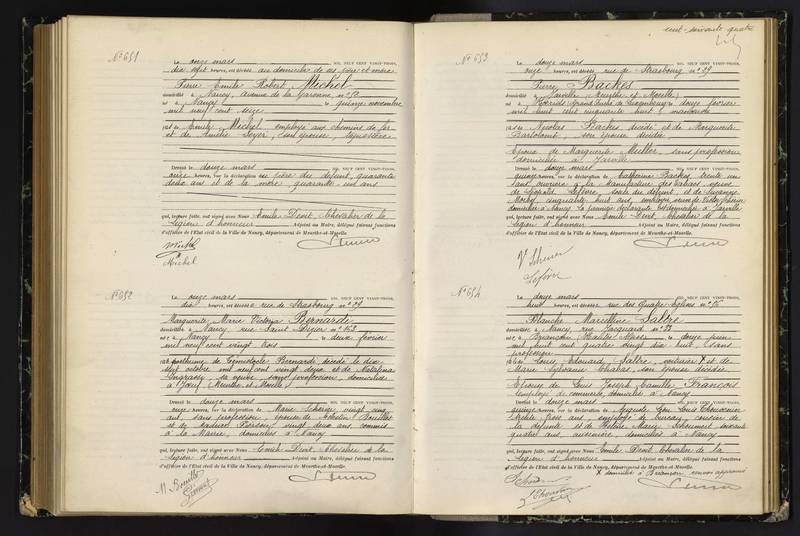 Nº 651
Le onze mars MIL NEUF CENT VINGT-TROIS,
dix sept heures, est décédé au domicile de ses père et mère
Pierre Emile Robert Michel
domicilié à Nancy, avenue de la Garenne, nº 50
né à Nancy le quinze novembre
mil neuf cent seize
fils de Emile Michel employé aux chemins de fer
et de Amélie Royer, son épouse,
Dressé le douze mars MIL NEUF CENT VINGT-TROIS,
onze heures, sur la déclaration du père du défunt, quarante
deux ans et de la mère, quarante un ans
qui, lecture faite, ont signé avec Nous Emile Devit Chevalier de la
Légion d'honneur Adjoint au Maire, délégué faisant fonctions
d'officier de l'Etat civil de la Ville de Nancy, département de Meurthe-et-Moselle.
Michel
Michel
Nº 652
Le onze mars MIL NEUF CENT VINGT-TROIS,
dix heures, est décédée rue de Strasbourg nº 29
Marguerite Marie Victoria Bernardi
domiciliée à Nancy, rue Saint Dizier nº 153
née à Nancy le deux février
mil neuf cent vingt trois
fille posthume de Bernardi décédé le dix
sept octobre mil neuf cent vingt deux et de
sa veuve, sans profession, domiciliée
à Joeuf (Meurthe et Moselle)
Dressé le douze mars MIL NEUF CENT VINGT-TROIS,
onze heures, sur la déclaration de Marie Scherer, vingt cinq
ans, sans profession, épouse de Bouillet
et de Pierson vingt deux ans commis
à la Mairie, domiciliés à Nancy
qui, lecture faite, ont signé avec Nous Emile Devit Chevalier de la
Légion d'honneur Adjoint au Maire, délégué faisant fonctions
d'officier de l'Etat civil de la Ville de Nancy, département de Meurthe-et-Moselle.
M Bouillet
cent soixante quatre
Nº 653
Le douze mars MIL NEUF CENT VINGT-TROIS,
onze heures, est décédé rue de Strasbourg nº 29
Pierre Backes
domicilié à Jarville (Meurthe et Moselle)
né à (Grand Duché de Luxembourg) le douze février
mil huit cent cinquante huit
fils de Nicolas Backes, décédé et de Marguerite
son épouse décédée
Epoux de Marguerite Muller, sans profession
domiciliée à Jarville
Dressé le douze mars MIL NEUF CENT VINGT-TROIS,
quinze heures, sur la déclaration de Catherine Backes, trente
ans ouvrière à la Manufacture des tabacs veuve
de Lefèvre, fille du défunt et de Suzanne
cinquante huit ans, employée, veuve de Victor
domiciliée à Nancy la première déclarante et domiciliée à Jarville
qui, lecture faite, ont signé avec Nous Emile Devit, Chevalier de la
Légion d'honneur Adjoint au Maire, délégué faisant fonctions
d'officier de l'Etat civil de la Ville de Nancy, département de Meurthe-et-Moselle.
Lefèvre
Nº 654
Le douze mars MIL NEUF CENT VINGT-TROIS,
huit heures, est décédée rue des Quatre Eglises nº
Blanche Marcelline Saltre
domiciliée à Nancy, rue Jacquard nº 33
née à Briançon (Hautes Alpes) le douze juin
mil huit cent quatre vingt dix huit, sans
profession
fille de Louis Edouard Saltre, voiturier X et de
Marie Sylvanie Chabas, son épouse décédée
Epouse de Louis Joseph Camille François
employé de commerce, domicilié à Nancy
Dressé le douze mars MIL NEUF CENT VINGT-TROIS,
quinze heures, sur la déclaration de Léon Louis
trente trois ans, employé de bureau, cousin de
la défunte et de Marie soixante
quatre ans, domiciliés à Nancy
qui, lecture faite, ont signé avec Nous Emile Devit Chevalier de la
Légion d'honneur Adjoint au Maire, délégué faisant fonctions
d'officier de l'Etat civil de la Ville de Nancy, département de Meurthe-et-Moselle.
X domicilié à Briançon, renvoi approuvé